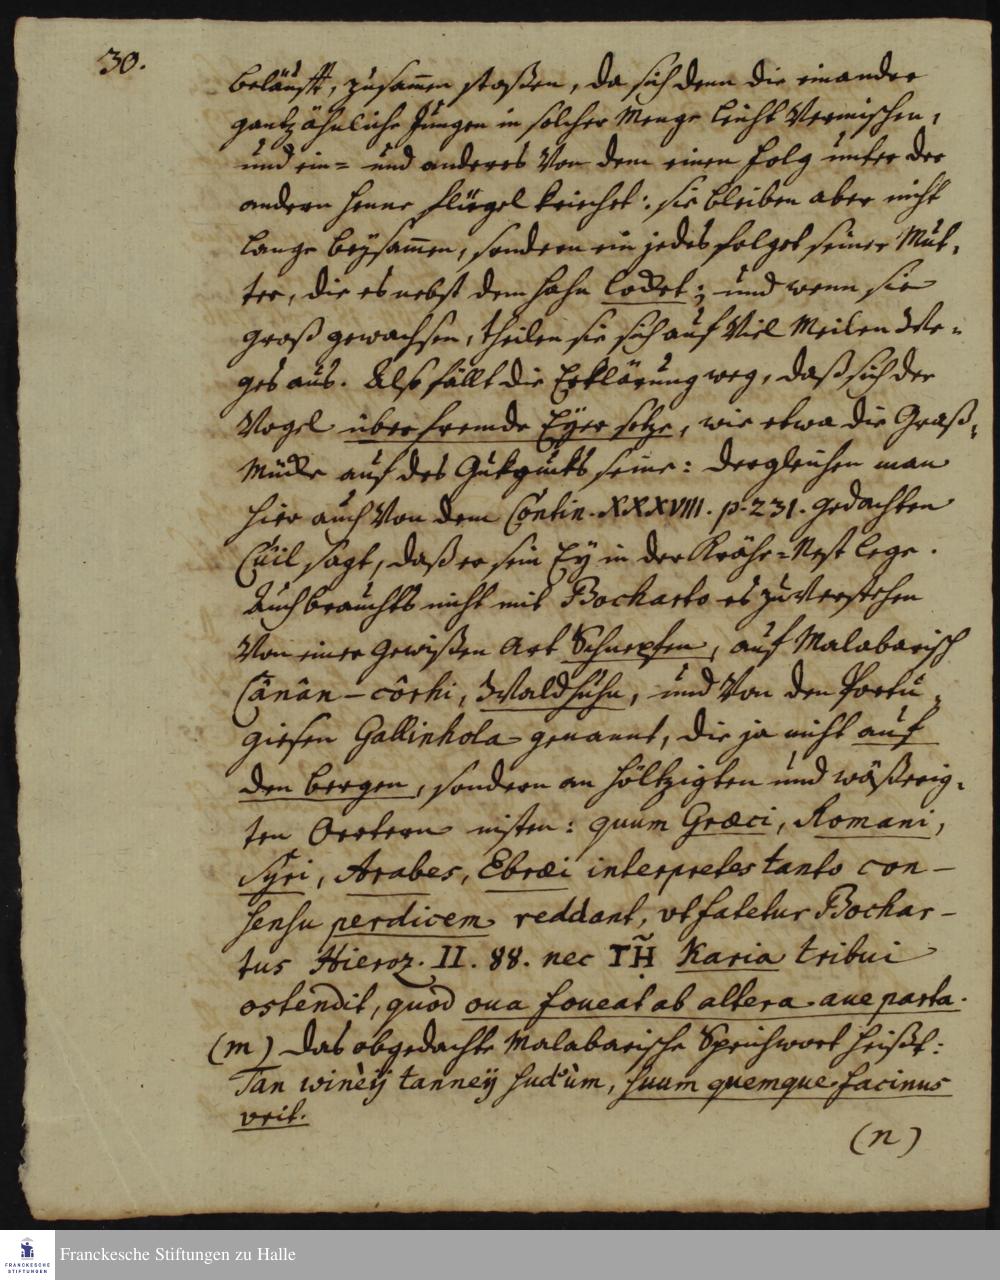 30.
beläufft, zusam̄en stoßen, da sich denn die einander
gantz ähnliche Jungen in solcher Menge leicht vermischen,
und ein= und anderes von dem einen Folg unter der
andern Henne Flügel kriechet: sie bleiben aber nicht
lange beÿsam̄en, sondern ein jedes folget seiner Mut-
ter, die es nebst dem Hahn locket; und wenn sie
groß gewachsen, theilen sie sich auf viel Meilen We-
ges aus. Also fällt die Erklärung weg, daß sich der
Vogel über fremde Eÿer setze, wie etwa die Graß-
Mücke auf des Gukguks seine: dergleichen man
hier auch von dem Contin. XXXVIII. p. 231. gedachten
Cuil sagt, daß er sein Eÿ in der Krähe-Nest lege.
Auch brauchts nicht mit Bocharto es zu verstehen
von einer gewißen Art Schnepfen, auf Malabarisch
Cânân-côrhi, Waldhuhn, und von den Portu-
giesen Gallinhola genannt, die ja nicht auf
den bergen, sondern an höltzigten und wäßerig-
ten Oertern nisten: quum Græci, Romani,
Syri, Arabes, Ebræi interpretes tanto con-
sensu perdicem reddant, vt fatetur Bochar-
tus Hieroz. II. 88. nec Karia tribui
ostendit, quòd oua foueat ab altera aue parta.
(m) das obgedachte Malabarische Sprichwort heißt:
Tan winèÿ tanneÿ sudùm, suum quemque facinus
vrit.
(n)
FRANCKESCHE
STIFTUNGEN
Franckesche Stiftungen zu Halle